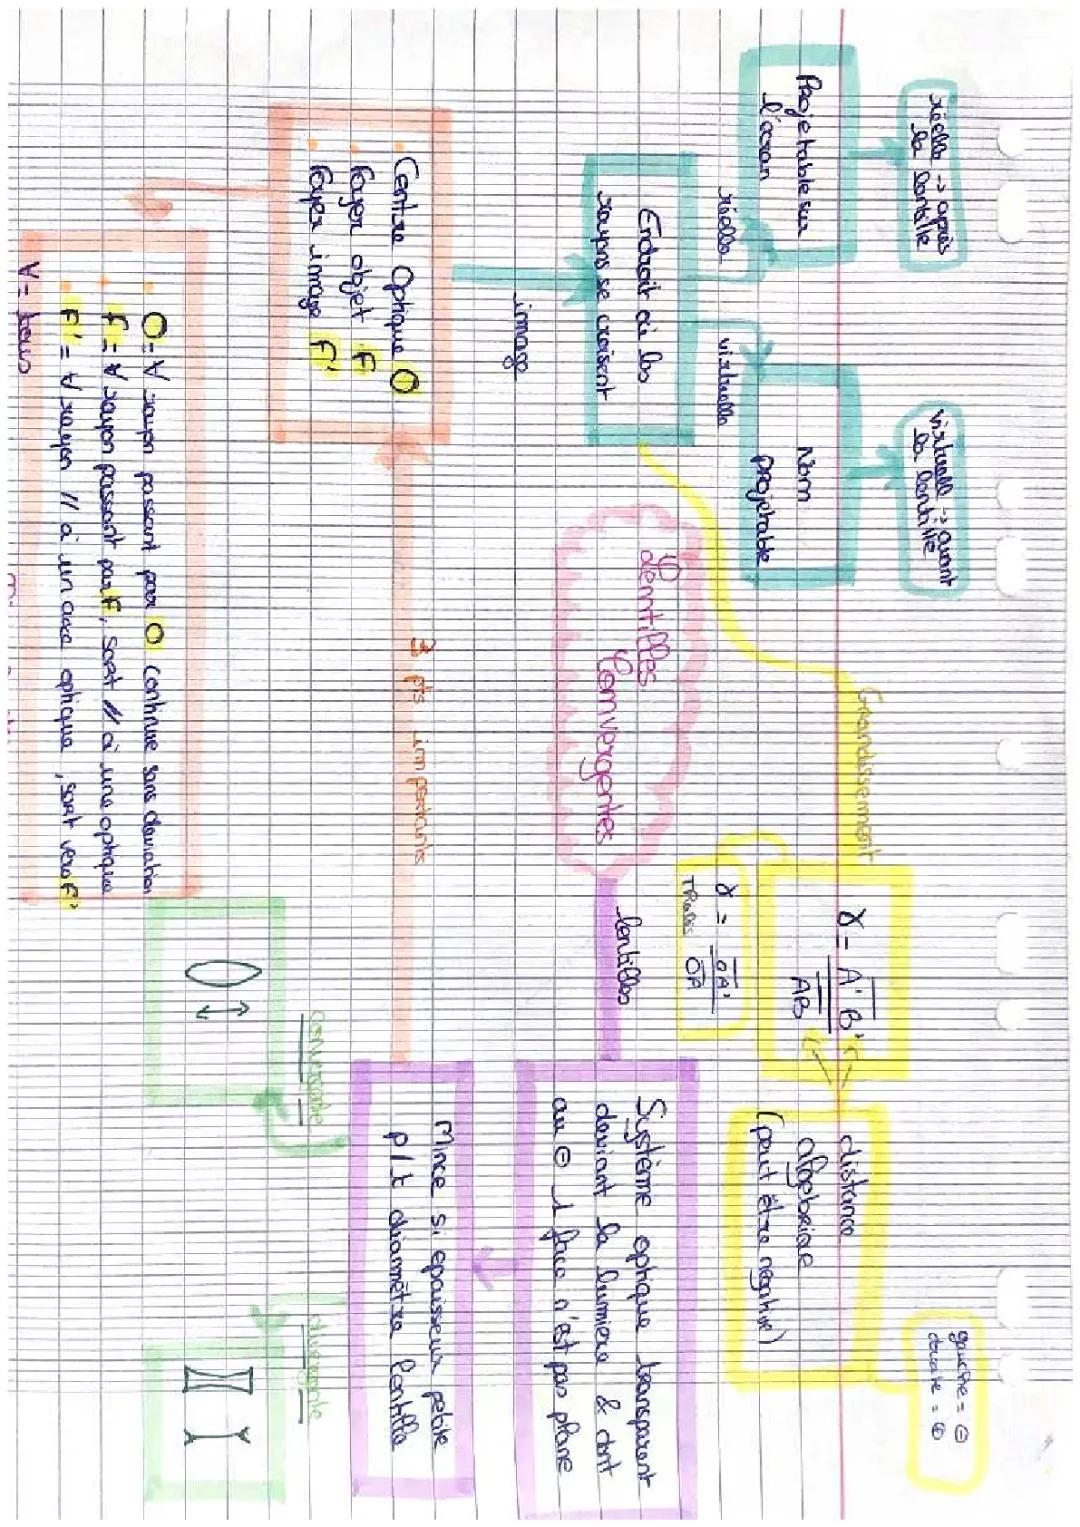 réelle → après
la lentille
virtuell → avant
la lentille
gauche = ⊖
droite = ⊕
Projetable sur
l'écran
Non
projetable
Grandissement
γ = A'B'
AB
distance
algébrique
(peut être négative)
réelle
virtuelle
γ = OA'
OA
Endroit où les
rayons se croisent
image
Lentilles
Convergentes
lentilles
Système optique transparent
deviant la lumière & dont
au ⊖ 1 face n'est pas plane
Centre Optique O
foyer objet F
foyer image F'
3 pts importants
Mince si epaisseur petite
p/t diamètre lentille
convergente
divergente
O = ∀ rayon passant par O continue sans deviation
F = ∀ rayon passant par F, sort // à une optique
F' = ∀ rayon // à un axe optique, sort vers F'